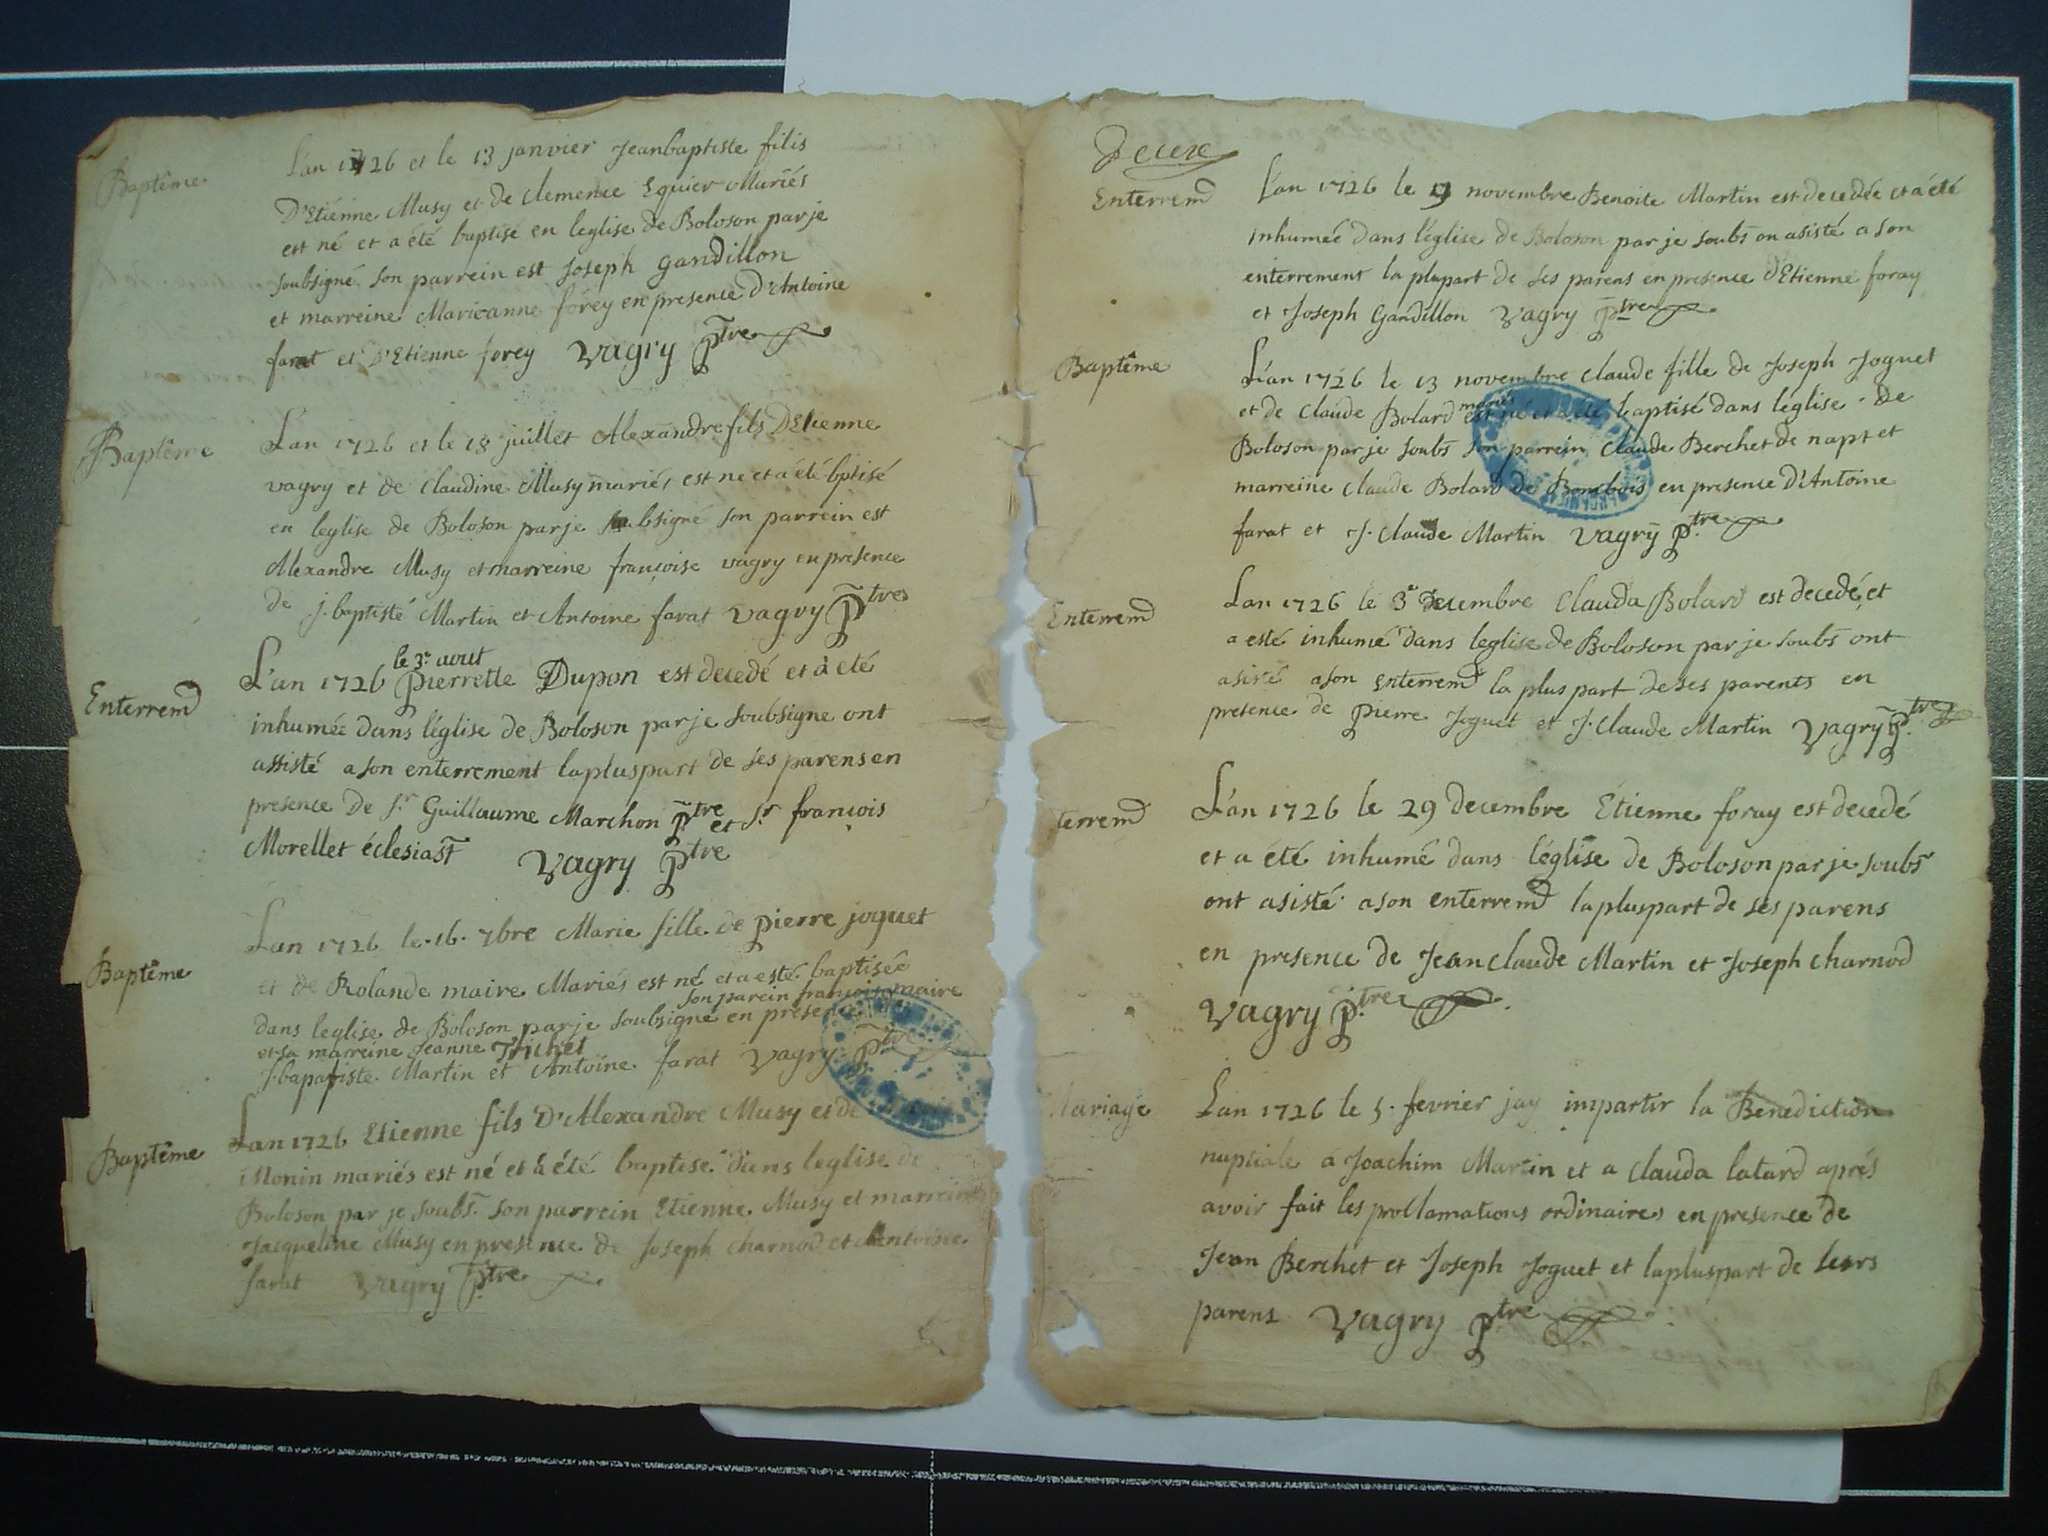 Baptême
L'an 1726 et le 13 janvier Jeanbaptiste filis
D'Etiénne Musy et de Clemence Eguier Mariés
est né et a été baptisé en leglise de Boloson par je
soubsigné son parrein est Joseph gandillon
et marreine Marieanne forey en presence d'Antoine
farat et D'Etienne forey Vagry ptre
Baptême
L'an 1726 et le 18 juillet Alexandre fils D'Etienne
vagry et de Claudine Musy mariés est ne et a été bptisé
en leglise de Boloson par je soubsigné son parrein est
Alexandre Musy et marreine françoise vagry en presence
de j. baptiste Martin et Antoine farat Vagry Ptre
le 3e aout
Enterremd
L'an 1726 Pierrette Dupon est decedé et à eté
inhumée dans l'église de Boloson par je soubsigne ont
assisté a son enterrement la pluspart de ses parens en
presence de Sr Guillaume Marchon ptre et Sr françois
Morellet éclesiast Vagry Ptre
L'an 1726 le .16. 7bre Marie fille de pierre joguet
Baptême
et de Rolande maire Mariés est né et a esté baptisée
son parein françois maire
dans leglise de Boloson par je soubsigné en presence
et sa marreine Jeanne Trichet
J. bapatiste Martin et Antoine farat Vagry Ptre
Baptême
L'an 1726 Etienne fils D'Alexandre Musy et de
Monin mariés est né et à été baptisé dans leglise de
Boloson par je soubs. son parrein Etienne Musy et marreine
Jacqueline Musy en presence de Joseph charnod et Antoine
farat Vagry Ptre
Deuxe
Enterremd
L'an 1726 le 9 novembre Benoite Martin est decedée et a été
inhumée dans l'église de Boloson par je soubs on asisté a son
enterrement la plupart de ses parens en presence d'Etienne foray
et Joseph Gandillon Vagry Ptre
Baptême
L'an 1726 le 13 novembre claude fille de Joseph Joguet
mariés
et de Claude Bolard est né et a été baptisé dans léglise de
Boloson par je soubs son parrein Claude Berchet de napt et
marreine Claude Bolard de Bombois en presence D'Antoine
farat et J. Claude Martin Vagry Ptre
Enterremd
L'an 1726 le 3e decembre Clauda Bolard est decedé et
a esté inhumé dans leglise de Boloson par je soubs ont
asisté a son enterremd la plus part de ses parents en
presence de Pierre Joguet et J. Claude Martin Vagry Ptre
terremd
L'an 1726 le 29 decembre Etienne foray est decedé
et a été inhumé dans l'église de Boloson par je soubs
ont asisté a son enterremd la pluspart de ses parens
en presence de Jean claude Martin et Joseph charnod
Vagry Ptre
Mariage
L'an 1726 le 5. fevrier jay impartir la Benediction
nuptiale à Joachim Martin et a Clauda latard aprés
avoir fait les proclamations ordinaires en presence de
Jean Berchet et Joseph Joguet et la pluspart de leurs
parens Vagry Ptre